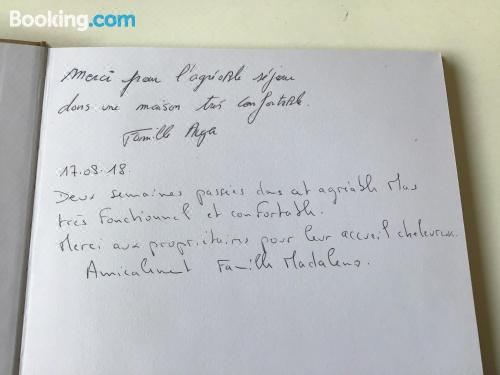 Booking.com
Merci pour l'agréable séjour
dans une maison très confortable.
Famille
17.08.18.
Deux semaines passées dans cet agréable Mas
très fonctionnel et confortable.
Merci aux propriétaires pour leur accueil chaleureux.
Amicalement Famille Madaleno.